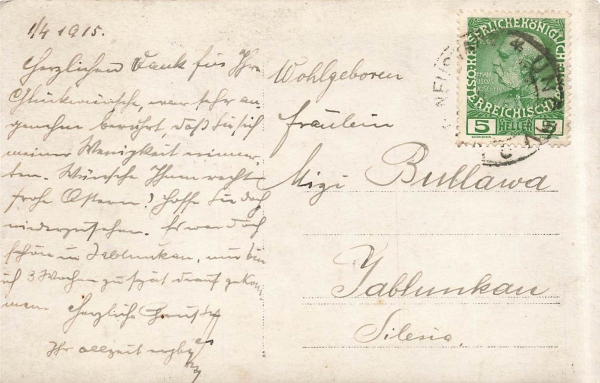 1/4 1915.
Herzlichen Dank für Ihre
Glückwünsche, war sehr an-
genehm berührt, daß Sie sich
meiner Wenigkeit erinner-
ten. Wünsche Ihnen recht
frohe Ostern! Hoffe Sie doch
wiederzusehen. Es war doch
schön in Jablunkau, nur bin
ich 3 Wochen zu spät drauf gekom-
men. Herzliche Grüsse
Ihr allzeit
Wohlgeboren
Fräulein
Mizi Bullawa
Jablunkau
Silesia.
KAISERLICHE KÖNIGLICHE
ÖSTERREICHISCHE
5 HELLER 5